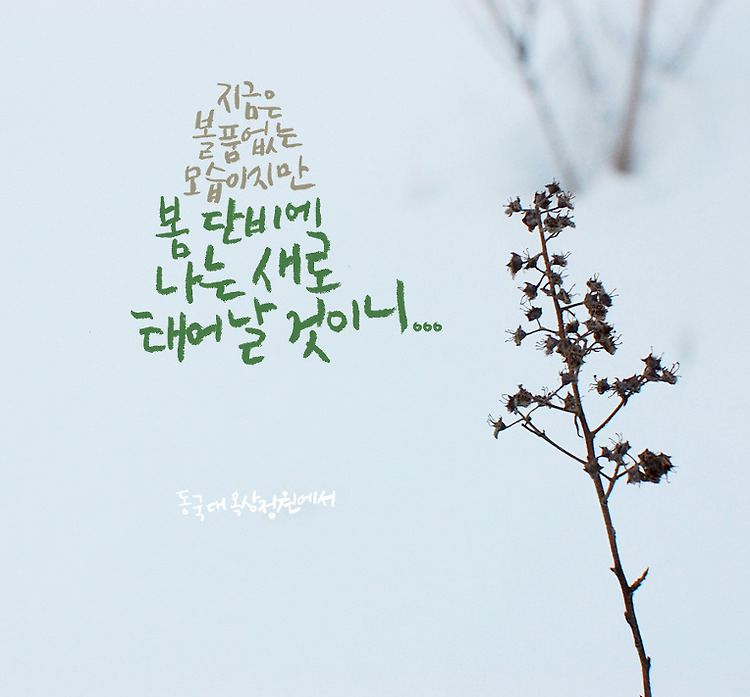 지금은
볼품없는
모습이지만
봄 단비에
나는 새로
태어날 것이니...
동국대 옥상정원에서